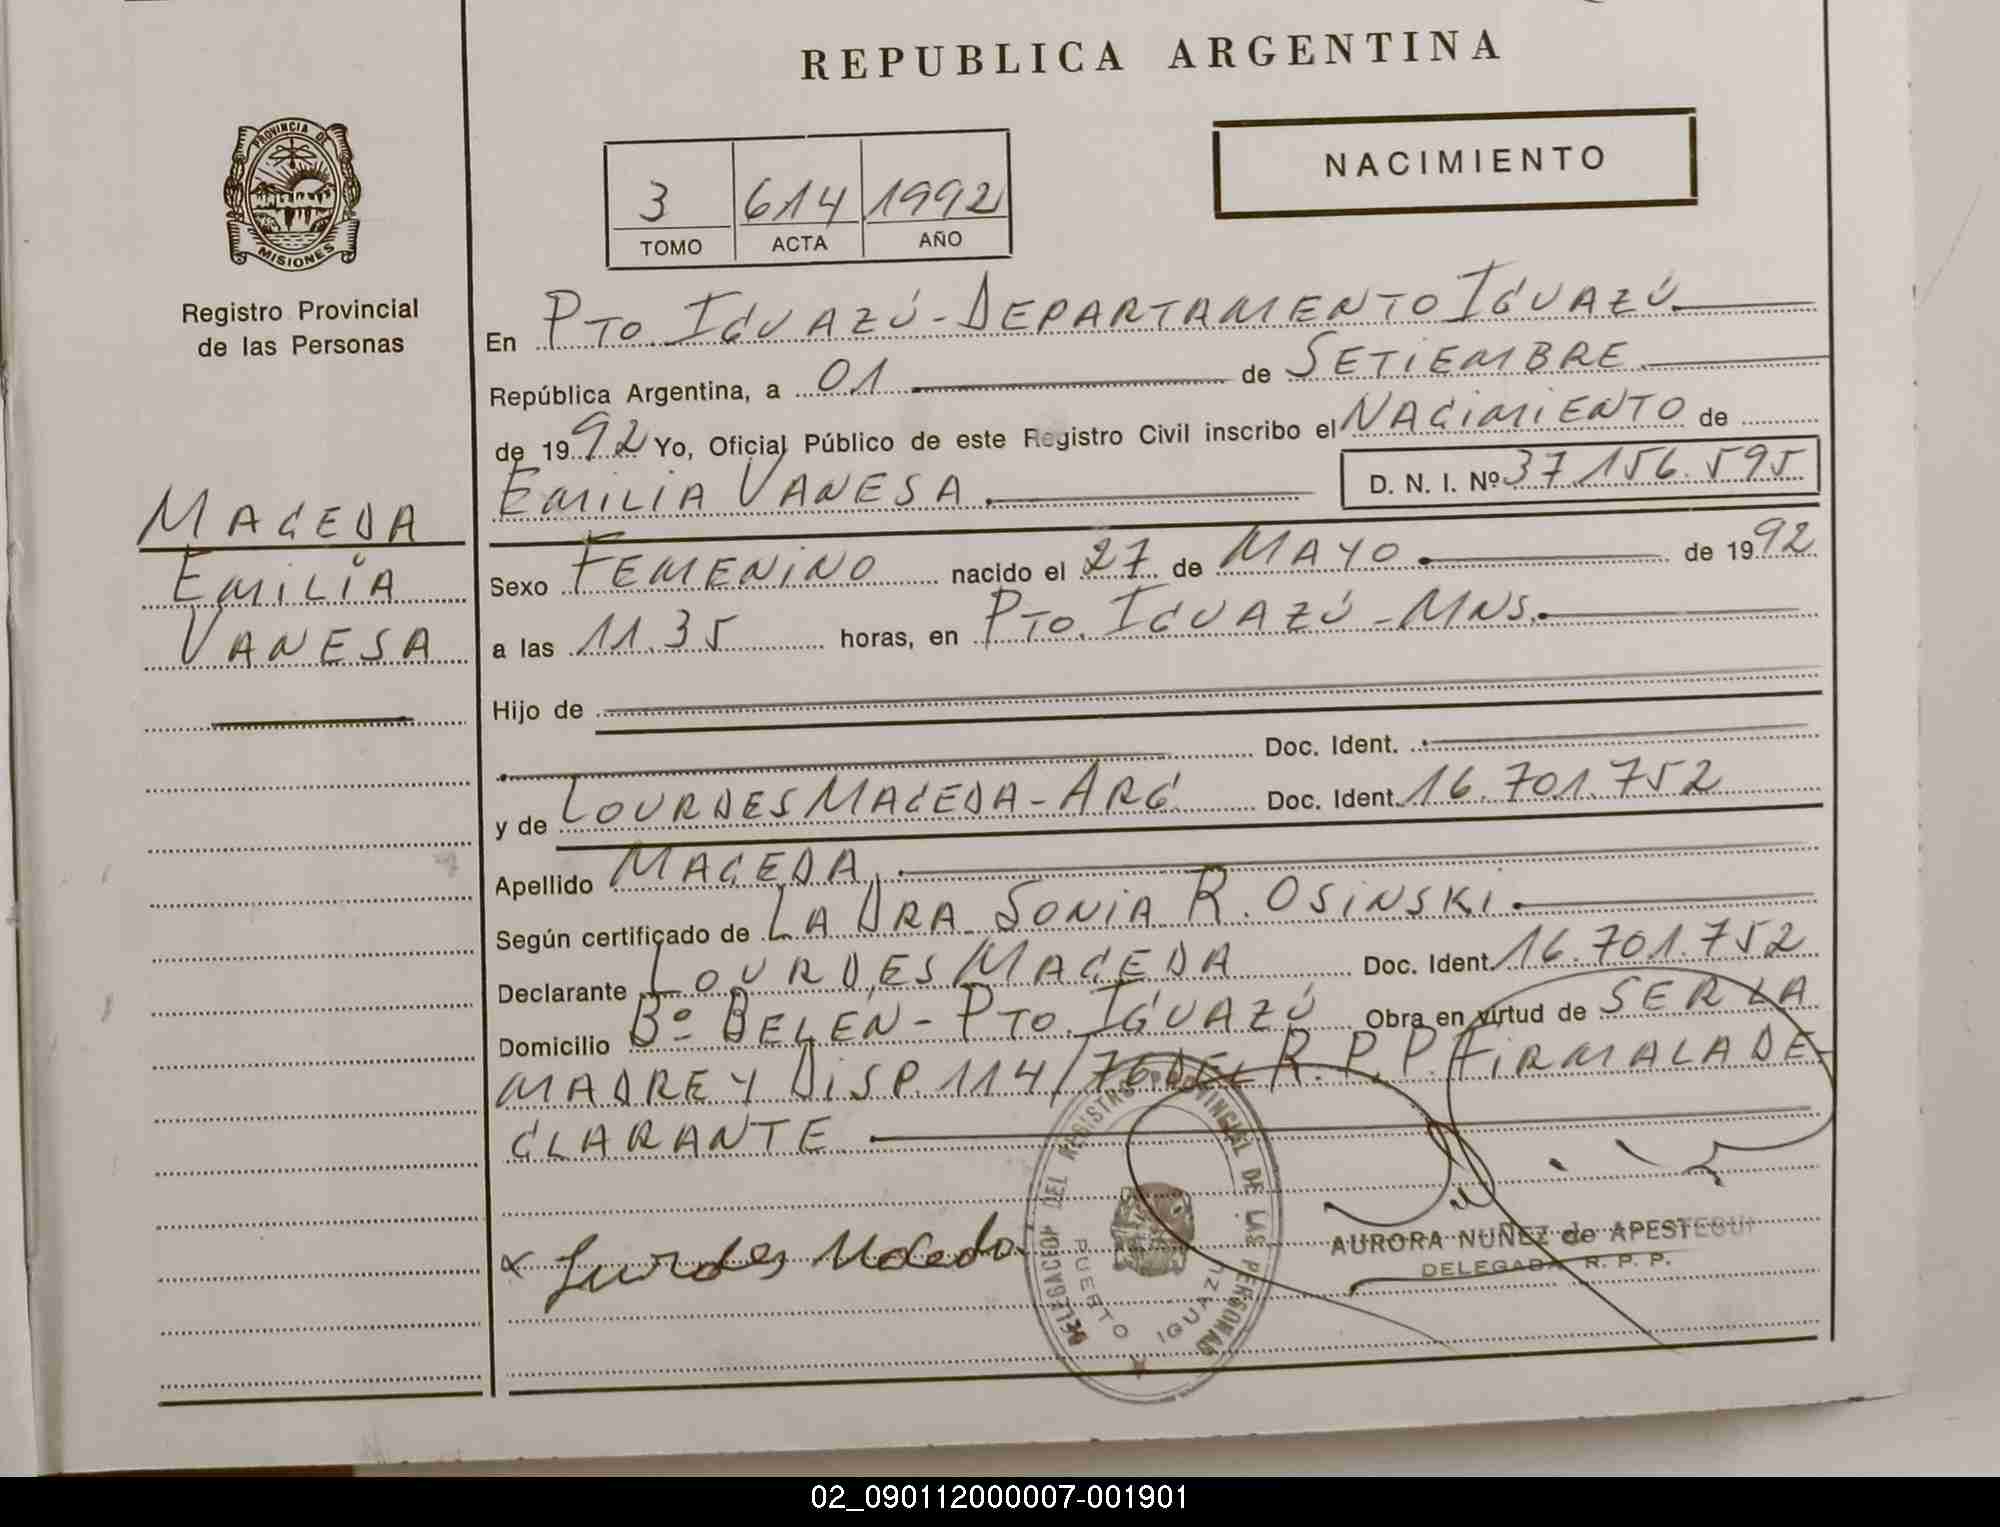 REPUBLICA ARGENTINA
PROVINCIA DE
MISIONES
Registro Provincial
de las Personas
NACIMIENTO
3 614 1992
TOMO ACTA AÑO
En PTO. IGUAZÚ - DEPARTAMENTO IGUAZÚ
República Argentina, a 01 de SETIEMBRE
de 1992 Yo, Oficial Público de este Registro Civil inscribo el NACIMIENTO de
EMILIA VANESA. D. N. I. Nº 37.156.595
MACEDA
EMILIA
VANESA
Sexo FEMENINO nacido el 27 de MAYO de 1992
a las 11.35 horas, en PTO. IGUAZÚ - MNS.
Hijo de
Doc. Ident.
y de LOURDES MACEDA - ARG. Doc. Ident. 16.701.752
Apellido MACEDA.
Según certificado de LA DRA. SONIA R. OSINSKI.
Declarante LOURDES MACEDA Doc. Ident. 16.701.752
Domicilio Bº BELÉN - PTO. IGUAZÚ Obra en virtud de SER LA
MADRE Y DISP. 114/76 DEL R.P.P. FIRMA LA DE-
CLARANTE
x Lourdes Maceda
DELEGACION DEL REGISTRO PROVINCIAL DE LAS PERSONAS
PUERTO IGUAZU
AURORA NUÑEZ de APESTEGUI
DELEGADA R. P. P.
02_090112000007-001901